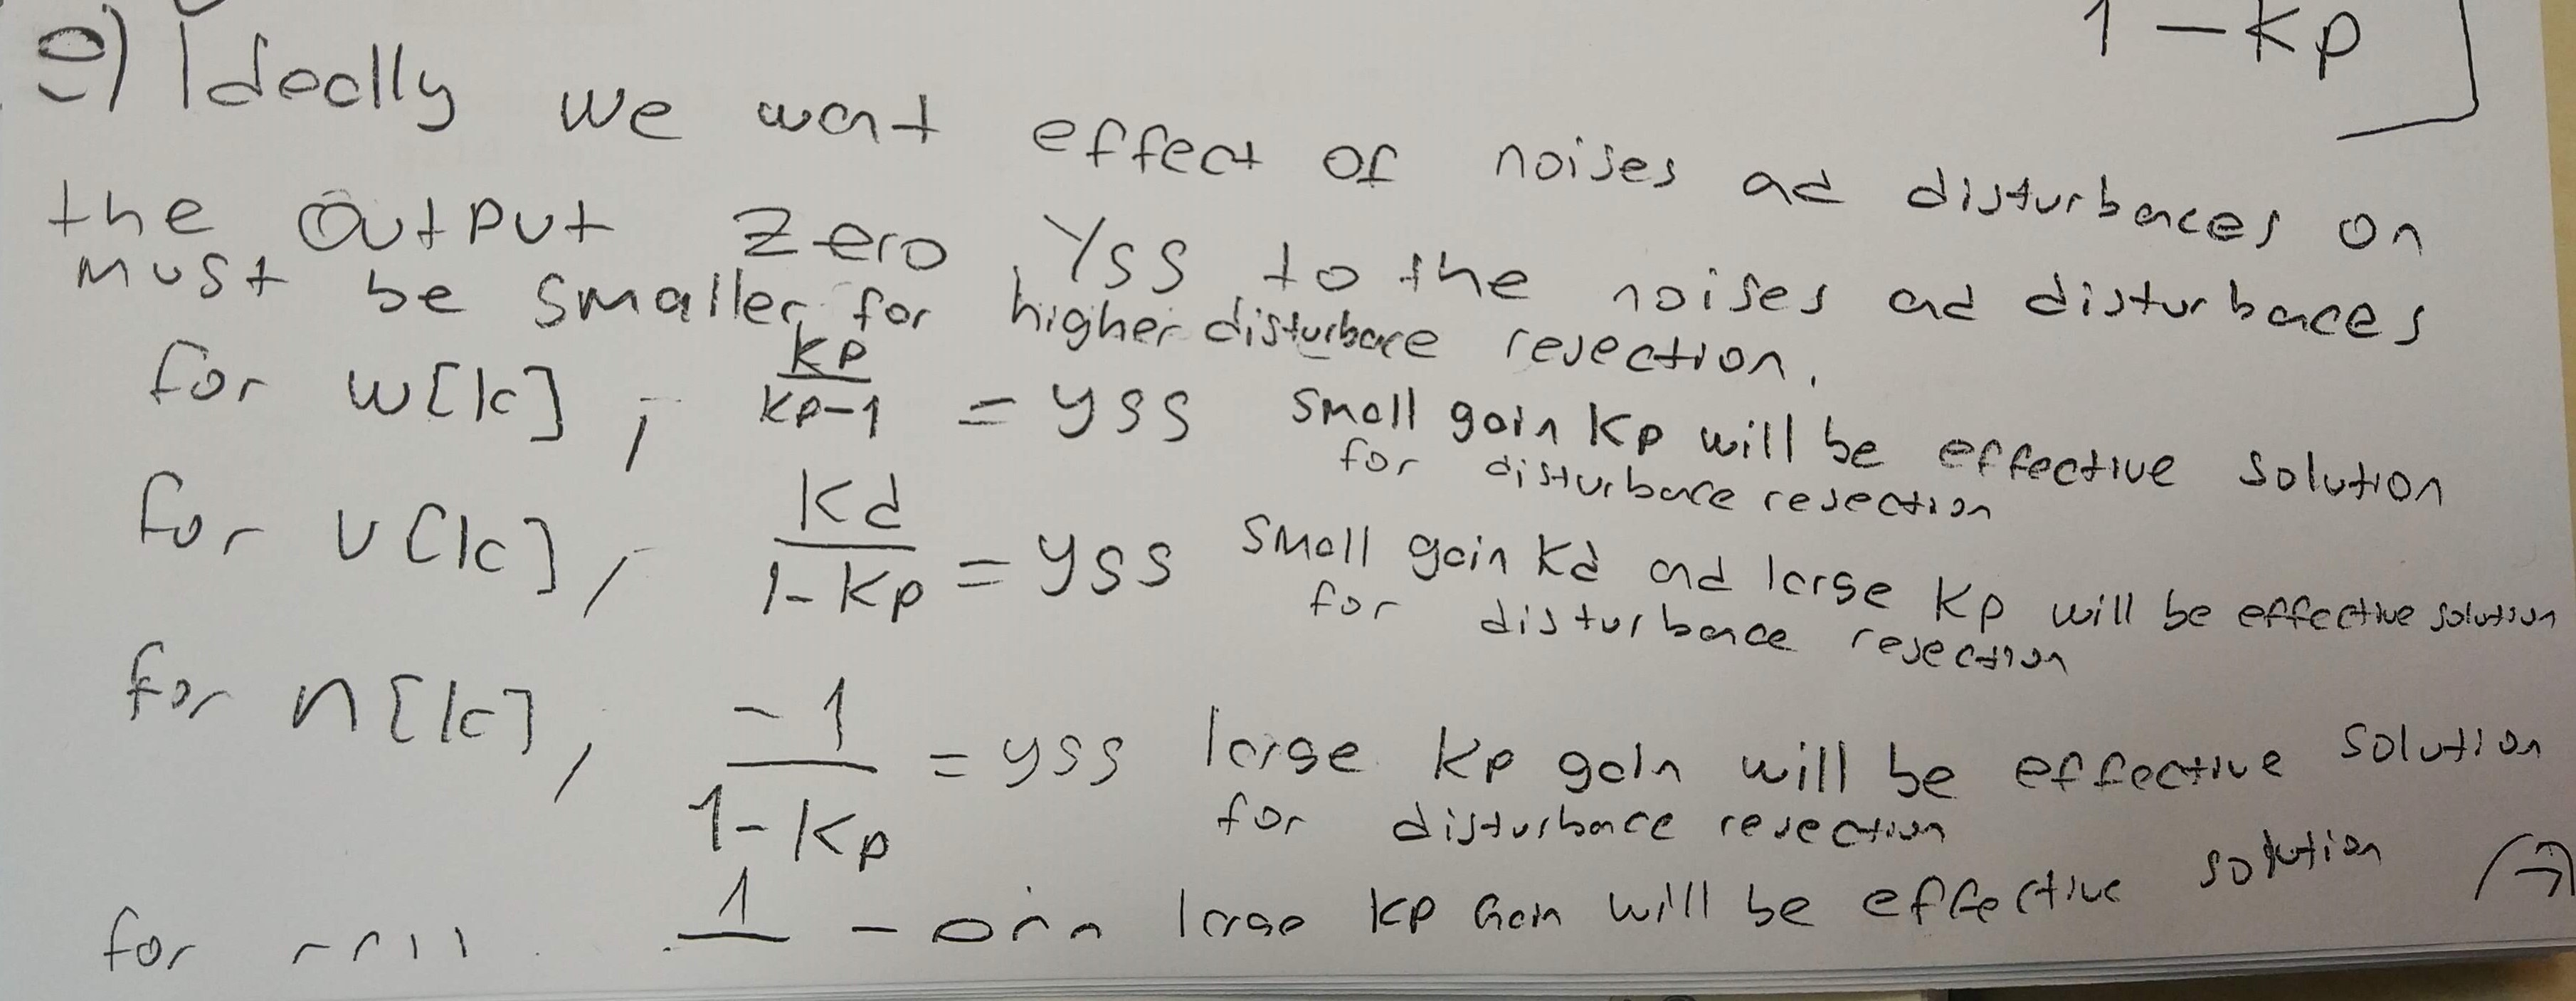 1 - Kp
e) Ideally we want effect of noises ad disturbances on
the output zero. Yss to the noises ad disturbaces
must be smaller for higher disturbace rejection.
for w[k], Kp/Kp-1 = yss small gain Kp will be effective solution
for disturbace rejection
for v[k], Kd/1-Kp = yss small gain Kd and large Kp will be effective solution
for disturbance rejection
for n[k], -1/1-Kp = yss large Kp gain will be effective solution
for disturbance rejection
for 1 large Kp Gain will be effective solution